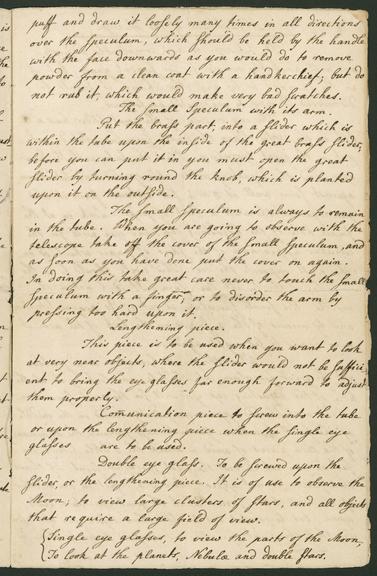 puff and draw it loosely many times in all directions
over the Speculum, which should be held by the handle
with the face downwards as you would do to remove
powder from a clean coat with a handkerchief, but do
not rub it; which would make very bad scratches.
The Small Speculum with its arm.
Put the brass part, into a slider which is
within the tube upon the inside of the great brass slider,
before you can put it in you must open the great
slider by turning round the knob, which is planted
upon it on the outside.
The Small Speculum is always to remain
in the tube. When you are going to observe with the
telescope take off the cover of the small Speculum, and
as soon as you have done put the cover on again.
In doing this take great care never to touch the small
Speculum with a finger, or to disorder the arm by
pressing too hard upon it.
Lengthening piece.
This piece is to be used when you want to look
at very near objects, where the slider would not be suffici
ent to bring the eye glasses far enough forward to adjust
them properly.
Comunication piece to screw into the tube
or upon the lengthening piece when the single eye
glasses are to be used.
Double eye glass. To be screwed upon the
slider, or the lengthening piece. It is of use to observe the
Moon; to view large clusters of stars, and all objects
that require a large field of view.
Single eye glasses, to view the parts of the Moon,
To look at the planets, Nebulæ and double stars.